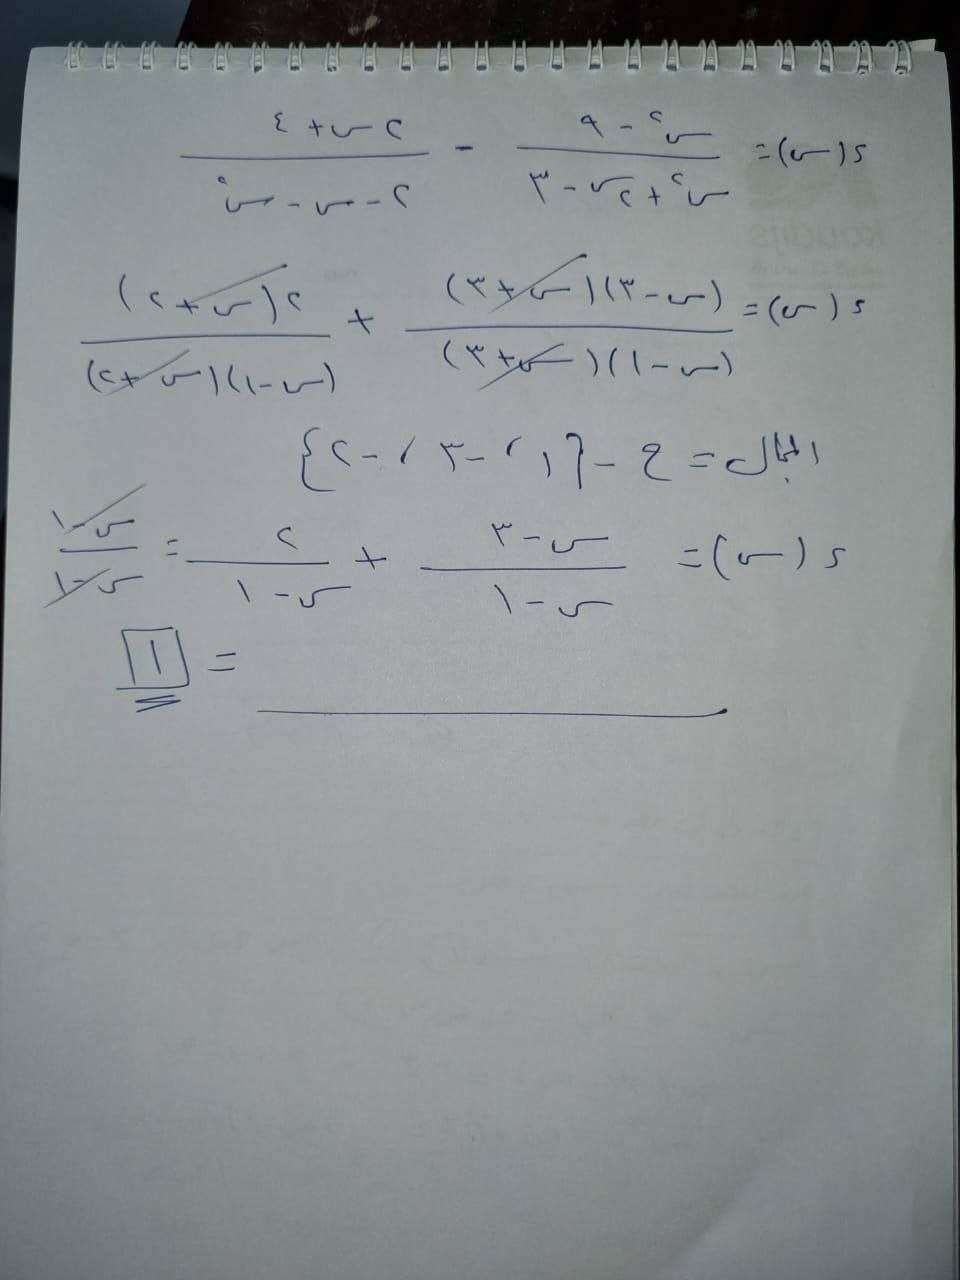 د(س) = (س² - ٩)/(س² + ٢س - ٣) - (٢س + ٤)/(٢ - س - س²)
د(س) = (س - ٣)(س + ٣)/(س - ١)(س + ٣) + ٢(س + ٢)/(س - ١)(س + ٢)
المجال = ح - {١، -٣، -٢}
د(س) = (س - ٣)/(س - ١) + ٢/(س - ١) = (س - ١)/(س - ١)
= ١